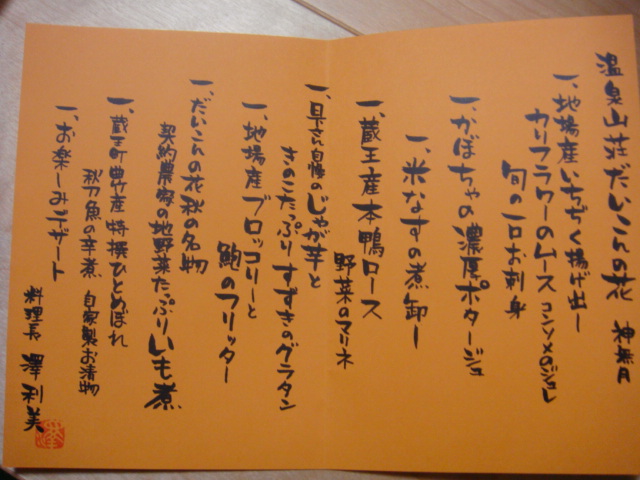 温泉山荘だいこんの花 神無月
一、地場産いちぢく揚げ出し
カリフラワーのムース コンソメのジュレ
旬の一口お刺身
一、かぼちゃの濃厚ポタージュ
一、米なすの煮卸し
一、蔵王産本鴨ロース
野菜のマリネ
一、具さん自慢のじゃが芋と
きのこたっぷりすずきのグラタン
一、地場産ブロッコリーと
鮑のフリッター
一、だいこんの花秋の名物
契約農家の地野菜たっぷりいも煮
一、蔵王町曲竹産特撰ひとめぼれ
秋刀魚の辛煮 自家製お漬物
一、お楽しみデザート
料理長 澤 利美